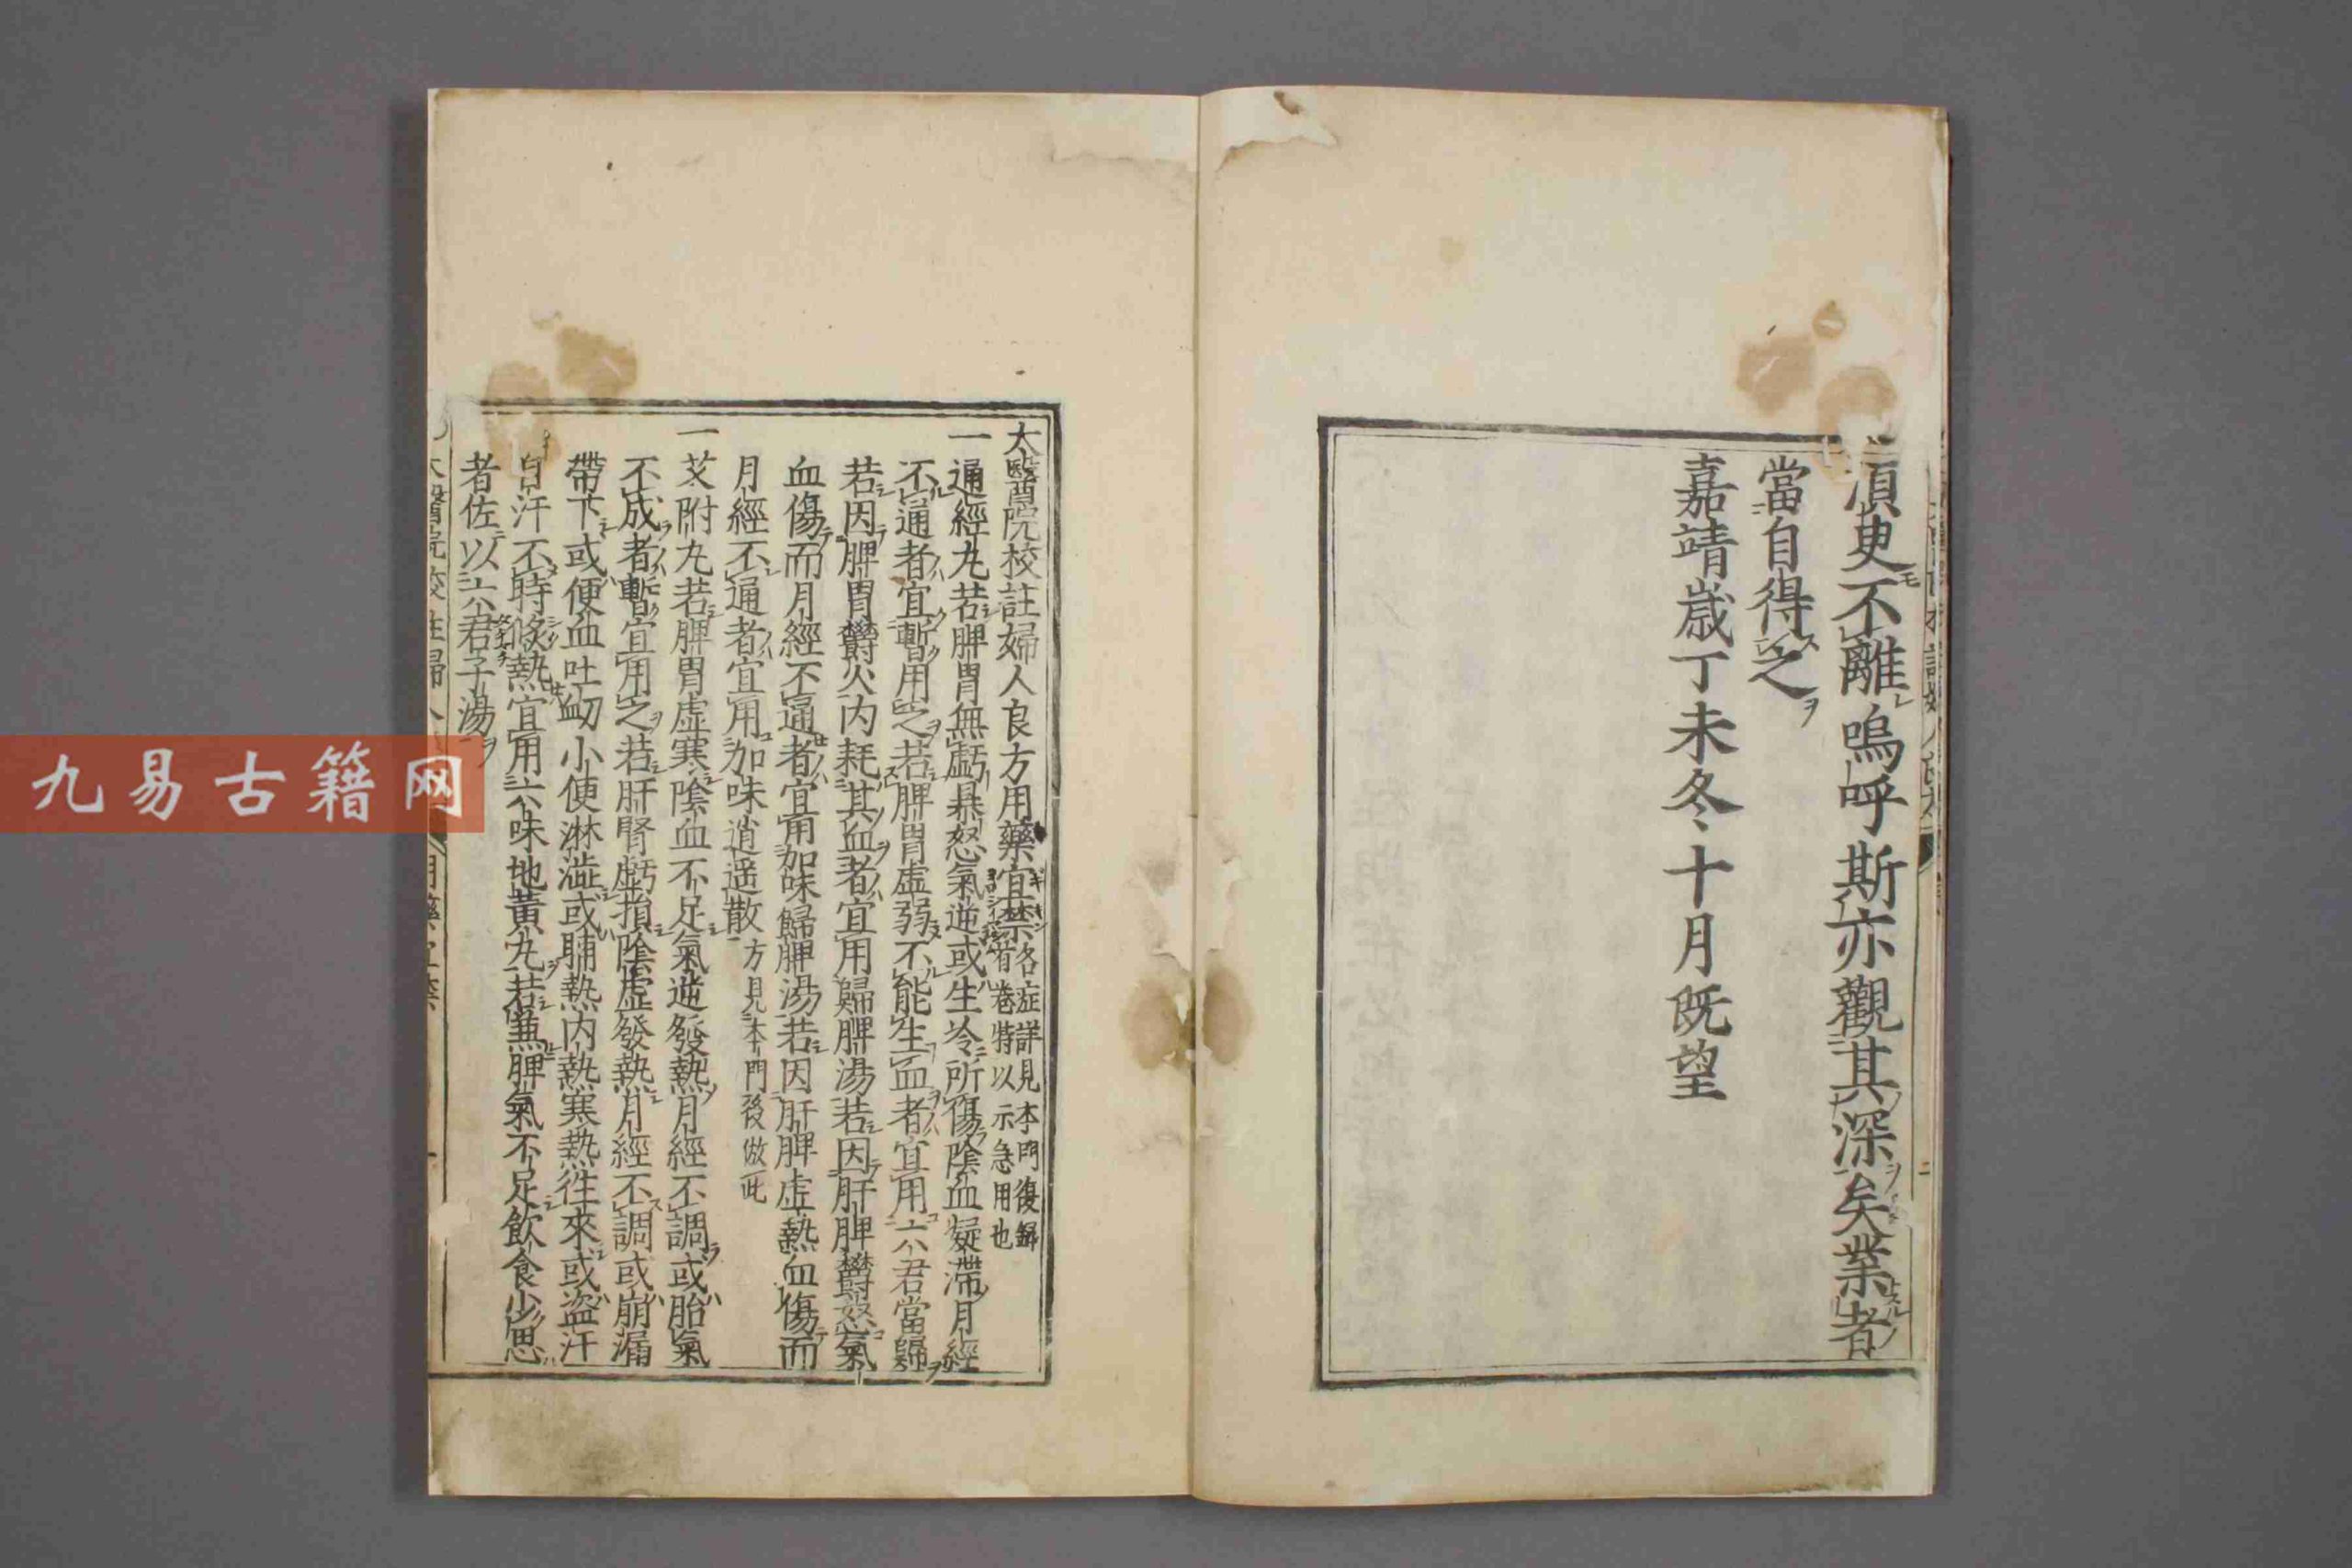 須臾不離嗚呼斯亦觀其深矣業者
當自得之
嘉靖歲丁未冬十月既望
太醫院校註婦人良方用藥宜禁各症詳見本門復錄
者卷特以示急用也
一通經丸若脾胃無虧暴怒氣逆或生冷所傷陰血凝滯月經
不通者宜暫用之若脾胃虛弱不能生血者宜用六君當歸
若因脾胃鬱火內耗其血者宜用歸脾湯若因肝脾鬱怒氣
血傷而月經不通者宜用加味歸脾湯若因肝脾虛熱血傷而
月經不通者宜用加味逍遥散方見本門後倣此
一艾附丸若脾胃虛寒陰血不足氣逆發熱月經不調或胎氣
不成者暫宜用之若肝腎虧損陰虛發熱月經不調或崩漏
帶下或便血吐衂小便淋澁或晡熱內熱寒熱徃來或盜汗
自汗不時倐熱宜用六味地黃丸若兼脾氣不足飲食少思
者佐以六君子湯
九易古籍网